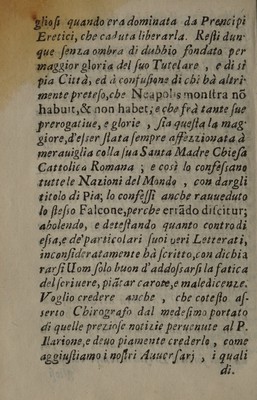 gliosi quando era dominata da Prencipi
Eretici, che caduta liberarla. Resti dun-
que senza ombra di dubbio fondato per
maggior gloria del suo Tutelare , e di sì
pia Città, ed à confusione di chi hà altri-
mente preteso, che Neapolis monstra nō
habuit, & non habet; e che frà tante sue
prerogatiue, e glorie , sia questa la mag-
giore, d'esser stata sempre affezzionata à
merauiglia colla sua Santa Madre Chiesa
Cattolica Romana ; e così lo confessano
tutte le Nazioni del Mondo , con dargli
titolo di Pia; lo confessi anche rauueduto
lo stesso Falcone, perche errādo discitur;
abolendo, e detestando quanto contro di
essa, e de' particolari suoi veri Letterati,
inconsideratamente hà scritto, con dichia
rarsi Uom solo buon d'addossarsi la fatica
del scriuere, piātar carote, e maledicenze.
Voglio credere anche , che cotesto as-
serto Chirografo dal medesimo portato
di quelle preziose notizie peruenute al P.
Ilarione, e deuo piamente crederlo , come
aggiustiamo i nostri Auuersarj , i quali
di.